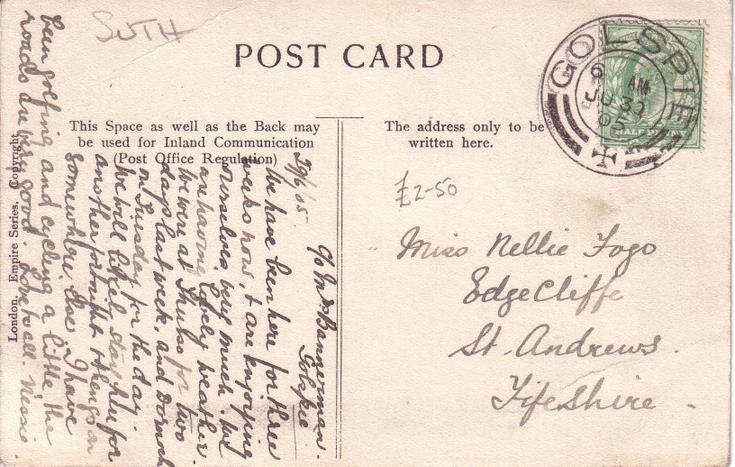 SUTH
POST CARD
This Space as well as the Back may
be used for Inland Communication
(Post Office Regulation)
The address only to be
written here.
London. Empire Series. Copyright
GOLSPIE
AM
JU 30
05
HALFPENNY
£2-50
Miss Nellie Fogo
EdgeCliffe
St. Andrews.
Fifeshire
C/o Mrs Bannerman.
Golspie.
29/6/05
We have been here for three
weeks now, & are enjoying
ourselves very much. We
are having lovely weather.
We were at Thurso for two
days last week, and Dornoch
on Tuesday for the day.
We will likely stay for
another then go on
somewhere else. I have
been golfing and cycling a little the
roads are good. Nessie